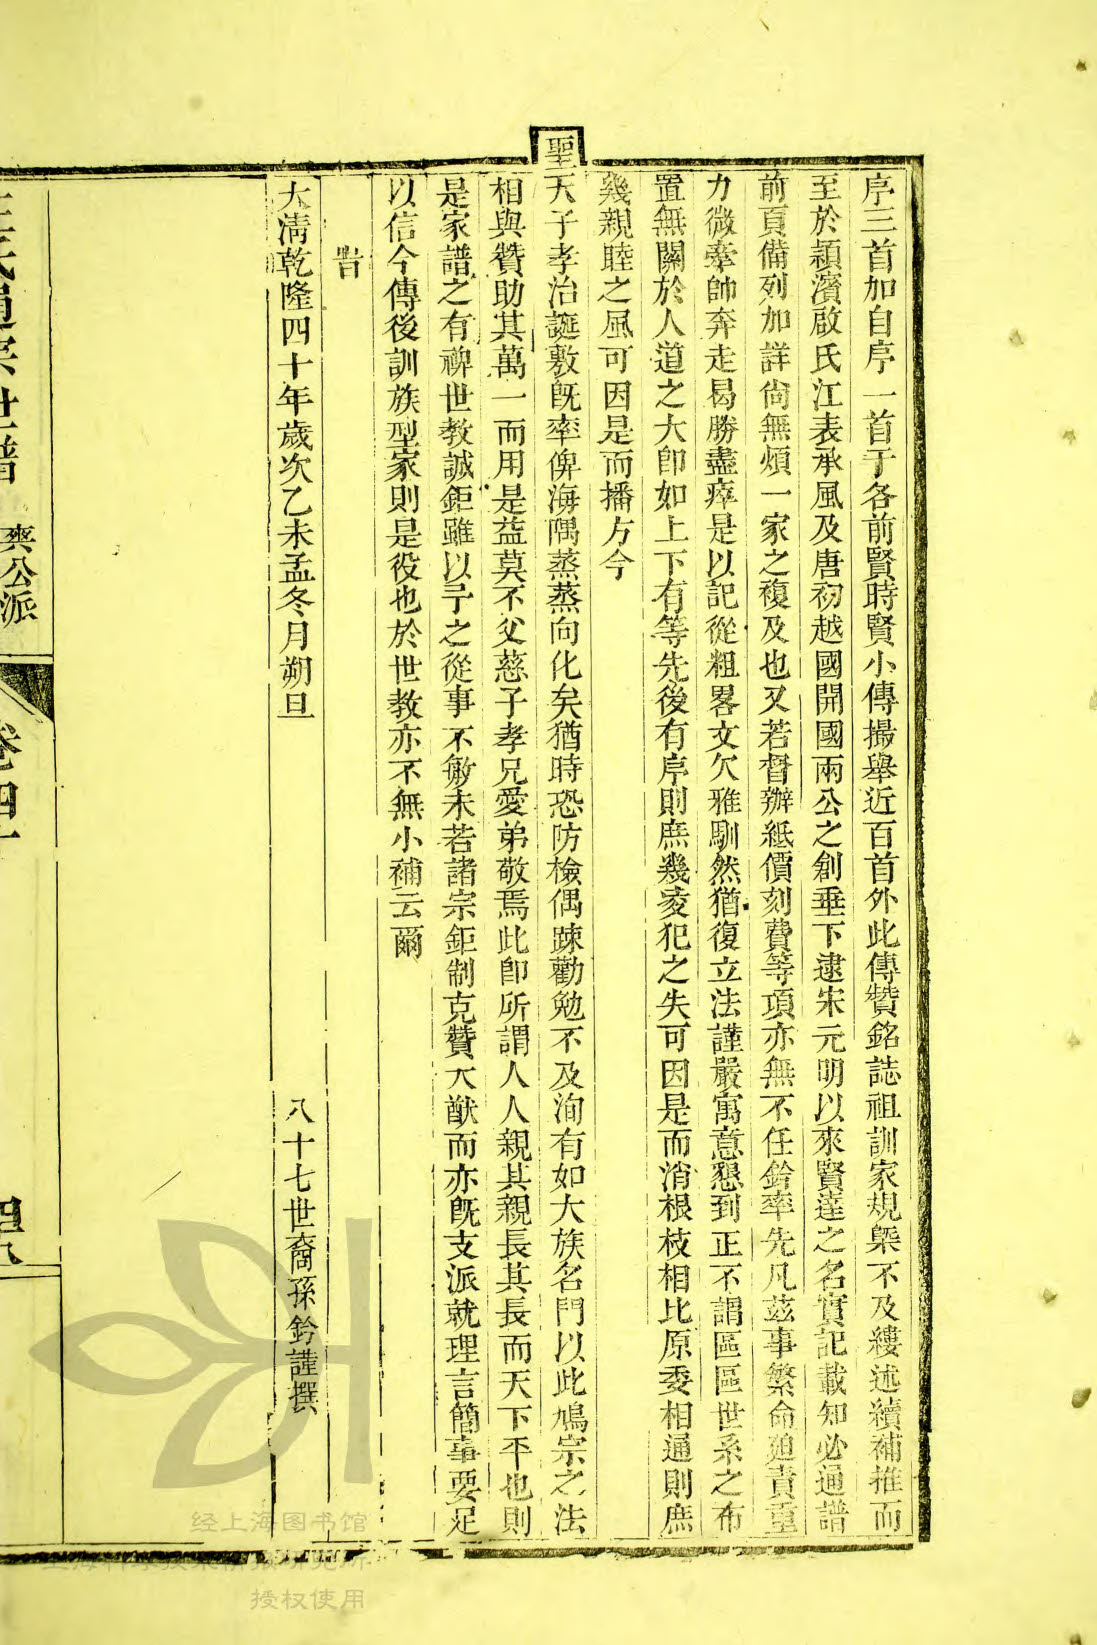 序三首加自序一首于各前賢時賢小傳撮舉近百首外此傳贊銘誌祖訓家規槩不及縷述續補推而
至於潁濱啟氏江表承風及唐初越國開國兩公之創垂下逮宋元明以來賢達之名實記載知必通譜
前頁備列加詳尙無煩一家之複及也又若督辦紙價刻費等項亦無不任鈐率先凡玆事繁命廹責重
力微牽帥奔走曷勝盡瘁是以記從粗畧文欠雅馴然猶復立法謹嚴寓意懇到正不謂區區世系之布
置無關於人道之大卽如上下有等先後有序則庶幾凌犯之失可因是而消根枝相比原委相通則庶
幾親睦之風可因是而播方今
聖
天子孝治誕敷旣率俾海隅蒸蒸向化矣猶時恐防檢偶踈勸勉不及洵有如大族名門以此鳩宗之法
相與贊助其萬一而用是益莫不父慈子孝兄愛弟敬焉此卽所謂人人親其親長其長而天下平也則
是家譜之有裨世教誠鉅雖以予之從事不敏未若諸宗鉅制克贊大猷而亦旣支派就理言簡事要足
以信今傳後訓族型家則是役也於世教亦不無小補云爾
旹
大淸乾隆四十年歲次乙未孟冬月朔旦
八十七世裔孫鈐謹撰
氏通宗世譜
爽公派
卷四十
四八
经上海图书馆
授权使用